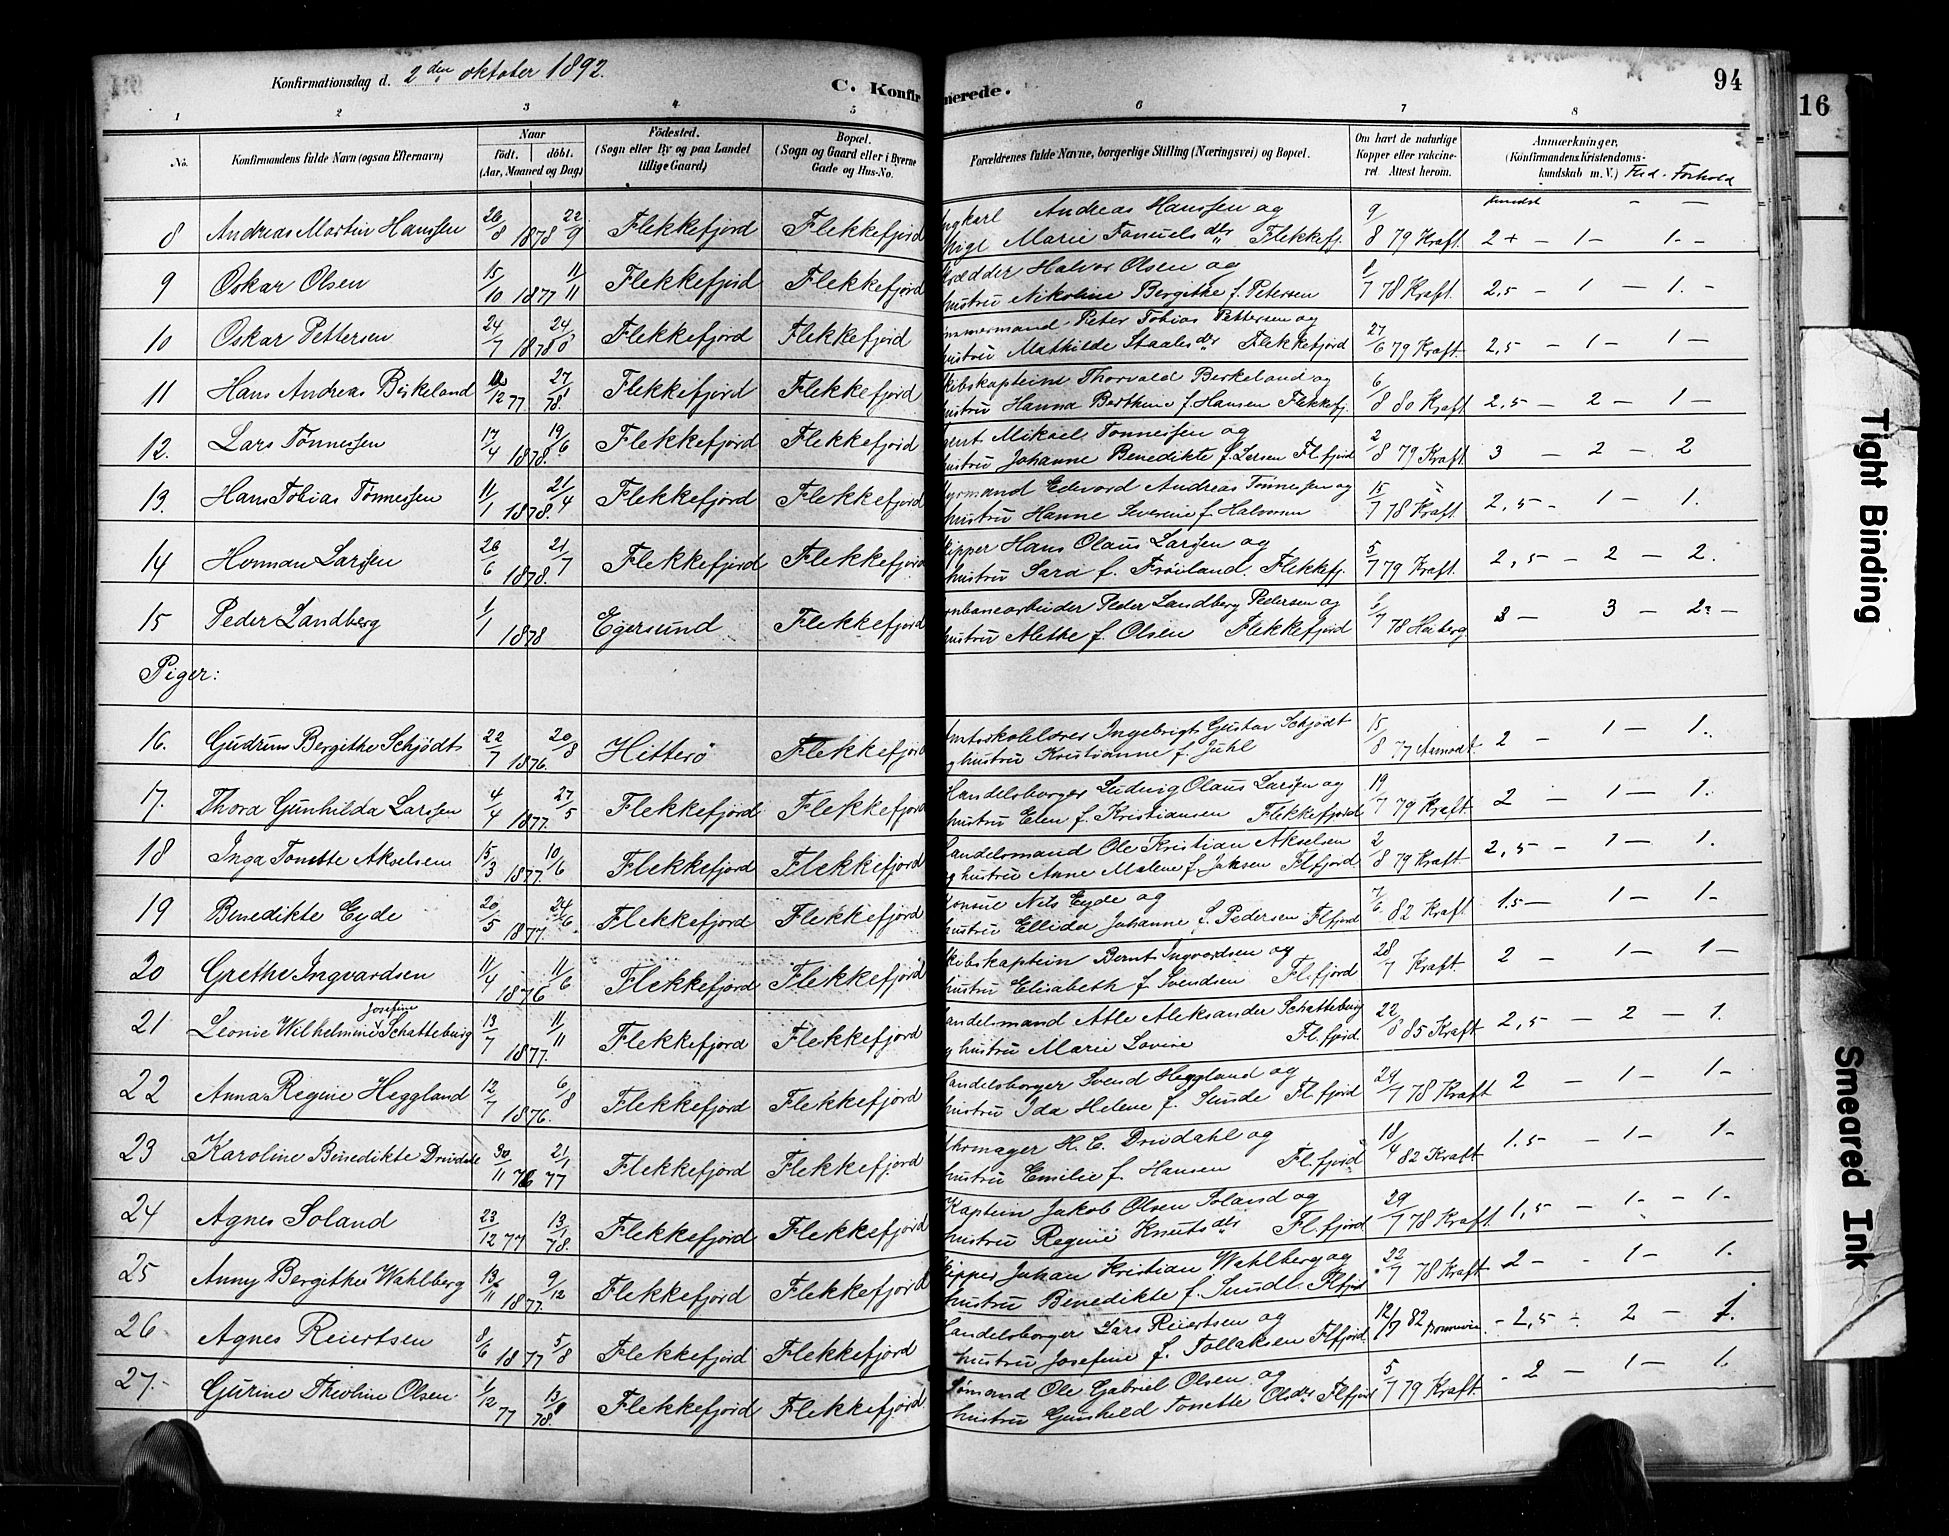 Konfirmationsdag d. 2den oktober 1892.
C. Konfir
merede.
94
16
1 2 3 4 5 6 7 8
No.
Konfirmandens fulde Navn (ogsaa Efternavn)
Naar
födt. döbt.
(Aar, Maaned og Dag)
Födested.
(Sogn eller By og paa Landet
tillige Gaard)
Bopæl.
(Sogn og Gaard eller i Byerne
Gade og Hus-No.
Forældrenes fulde Navne, borgerlige Stilling (Næringsvei) og Bopæl.
Om havt de naturlige
Kopper eller vakcine-
ret Attest herom.
Anmærkninger,
(Konfirmandens Kristendoms-
kundskab m. V.) Flid - Forhold
8 Andreas Martin Hanssen 26/8 1878 22/9 Flekkefjord Flekkefjord
Andreas Hanssen og
Marie Tanuels dtr Flekkefj. 9/8 79 Kraft. 2+ - 1 - 1 -
9 Oskar Olsen 15/10 1877 11/11 Flekkefjord Flekkefjord
Halvor Olsen og
hustru Nikoline Bergithe f. Petersen 1/7 78 Kraft. 2,5 - 1 - 1. -
10 Oskar Pettersen 24/7 1878 24/8 Flekkefjord Flekkefjord
mmermand Peter Tobias Pettersen og
hustru Mathilde Staalesdtr Flekkefjord 27/6 79 Kraft. 2,5 - 1 - 1 -
11 Hans Andreas Birkeland 12 77 27/1 78. Flekkefjord Flekkefjord
kibskaptein Thorvald Berkeland og
hustru Hanna Berthine f. Hansen Flekkefj. 6/8 80 Kraft 2,5 - 2 - 1 -
12. Lars Tönnessen 17/4 1878. 19/6 Flekkefjord Flekkefjord
Mikael Tonnessen og
hustru Johanne Benedikte f. Larsen Fl.fjord 2/8 79 Kraft. 3 - 2 - 2
13. Hans Tobias Tönnessen 11/1 1878. 21/4 Flekkefjord Flekkefjord
yrmand Edvard Andreas Tönnessen og
hustru Hanne Severine f. Halvorsen 15/7 78 Kraft. 2,5 - 1 - 1.
14 Herman Larssen 26/6 1878. 21/7 Flekkefjord Flekkefjord
kipper Hans Olaus Larssen og
hustru Sara f. Fröiland. Flekkefj. 5/7 79 Kraft. 2,5 - 2 - 2.
15 Peder Landberg 1/1 1878 Egersund Flekkefjord
rnbanearbeider Peder Landberg Pedersen og
hustru Alethe f. Olsen Flekkefjord 1/7 78 3 - 3 - 2 -
Piger:
16. Gudrun Bergithe Schjödt 22/7 1876. 20/8 Hitterö Flekkefjord
mtsskolelærer Ingebrigt Gustav Schjödt
g hustru Kristianne f. Juhl 15/8 77 2 - 1 - 1.
17. Thora Gunhilda Larssen 4/4 1877. 27/5 Flekkefjord Flekkefjord
Handelsborger Ludvig Olaus Larssen og
hustru Elen f. Kristiansen Flekkefjord 19/7 79 Kraft. 2 - 1 - 1.
18 Inga Tomette Akselsen 15/3 1877. 10/6 Flekkefjord Flekkefjord
Handelsmand Ole Kristian Akselsen
g hustru Anne Malene f. Jaksen Flfjord 2/8 79 Kraft. 2,5 - 1 - 1.
19 Benedikte Eyde 20/5 1877. 24/6. Flekkefjord Flekkefjord
Konsul Nils Eyde og
hustru Ellida Johanne f. Pedersen Flfjord 7/6 82 Kraft. 1.5 - 1 - 1 -
20 Grethe Ingvardsen 11/4 1876 11/6 Flekkefjord Flekkefjord
kibskaptein Bernt Ingvardsen og
hustru Elisabeth f. Svendsen Fl.fjord 28/7 Kraft. 2 - 1 - 1 -
21 Leonie Wilhelmine Josefine Schatteburg 13/7 1877. 11/11 Flekkefjord Flekkefjord
andelsmand Atle Aleksander Schatteburg
g hustru Marie Lovise Fl.fjord. 22/8 85 Kraft. 2,5 - 2 - 1.
22 Anna Regine Heggland 12/7 1876. 6/8 Flekkefjord Flekkefjord
Handelsborger Svend Heggland og
hustru Ida Helene f. Sunde Fl.fjord 24/7 78 Kraft. 2 - 1 - 1 -
23 Karoline Benedikte Drivdahl 30/11 76 21/1 77 Flekkefjord Flekkefjord
H. C. Drivdahl og
hustru Emilie f. Hansen Fl.fjord 18/4 82 Kraft. 1.5 - 1 - 1 -
24 Agnes Soland 23/12 77 13/1 78. Flekkefjord Flekkefjord
Kaptein Jakob Olsen Soland og
hustru Regine Knutsdtr Fl.fjord 29/7 78 Kraft. 1,5 - 1 - 1 -
25 Anny Bergithe Wahlberg 13/11 1877. 9/12 Flekkefjord Flekkefjord
kipper Johan Kristian Wahlberg og
hustru Benedikte f. Flfjord 22/7 78 Kraft. 2 - 1 - 1.
26 Agnes Reiertsen 8/6 1877 5/8 Flekkefjord Flekkefjord
Handelsborger Lars Reiertsen og
hustru Josefine f. Tollaksen Flfjord. 12/7 82 - 2,5 - 2 - 1.
27. Gurine Thioline Olsen. 1/12 77 13/1 78. Flekkefjord Flekkefjord.
Sömand Ole Gabriel Olsen og
hustru Gunhild Tonette Olsdtr Flfjord 5/7 79 Kraft. - 2 - 1 - 1.
Tight Binding
Smeared Ink